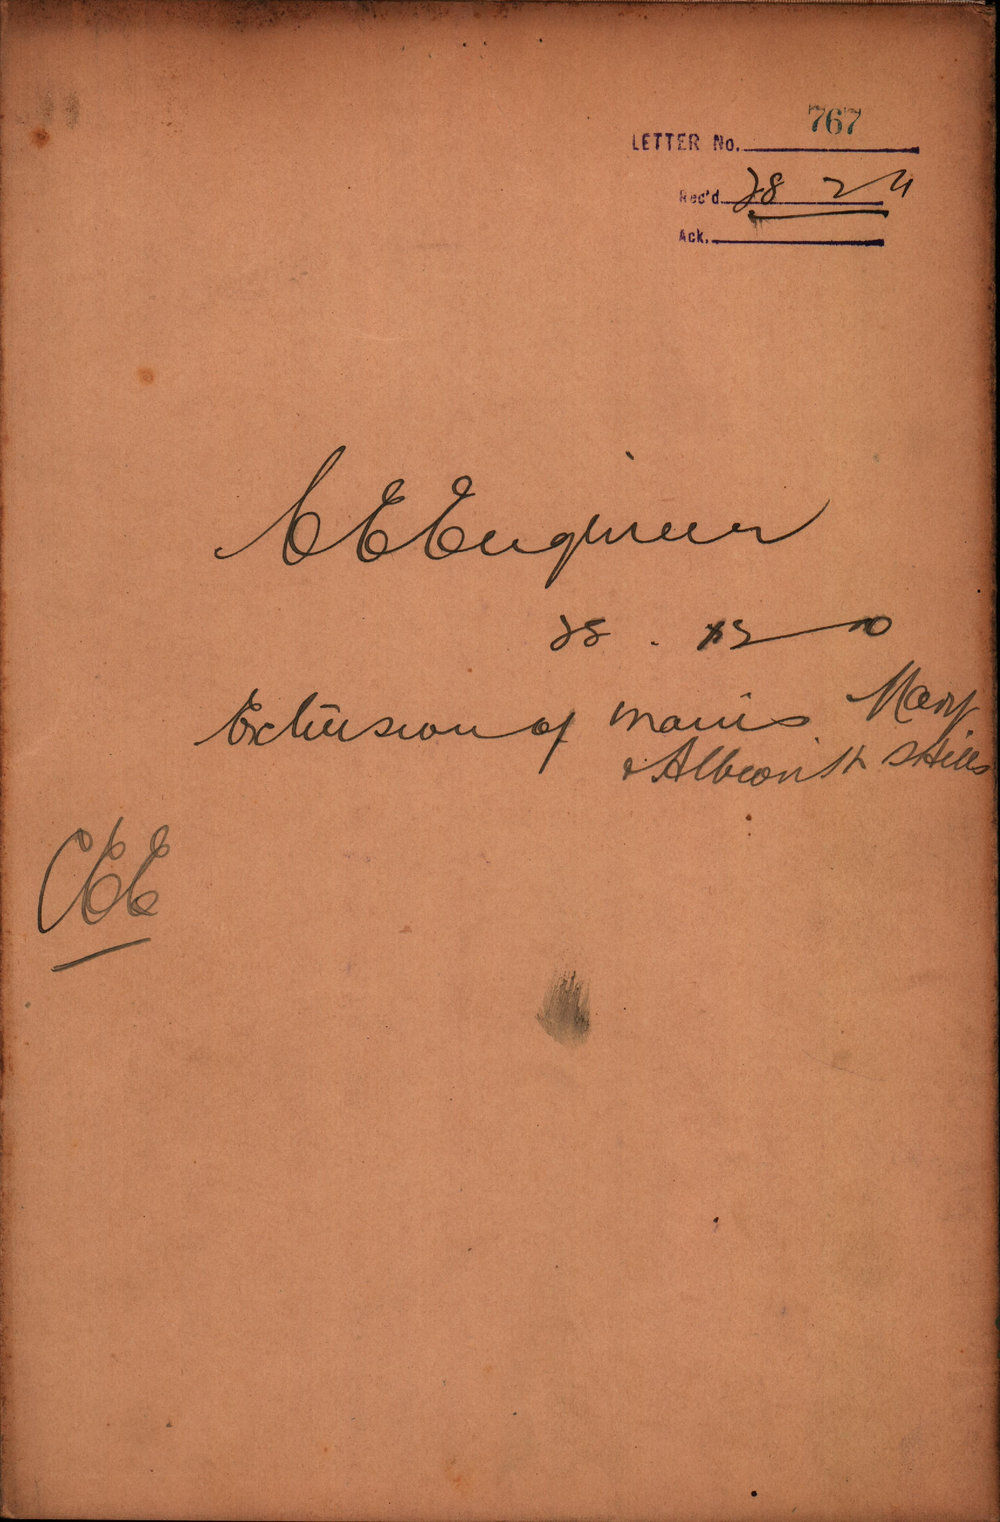 LETTER No. 767
Rec'd. 28 2 21
Ack.
C E Engineer
28. 12 20
Extension of mains Mary
& Albion St S Hills
CEE